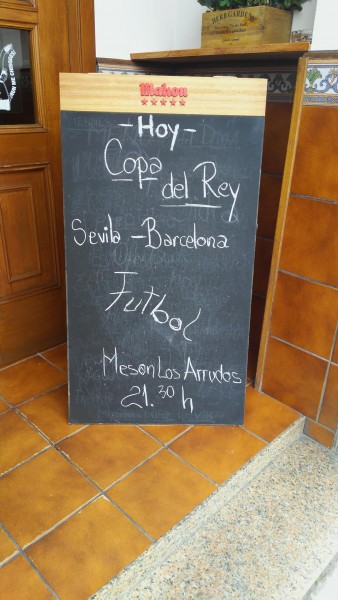 HERB GARDEN
Mahou
- Hoy -
Copa
del Rey
Sevilla - Barcelona
Futbol
Meson Los Arrudos
21.30 h